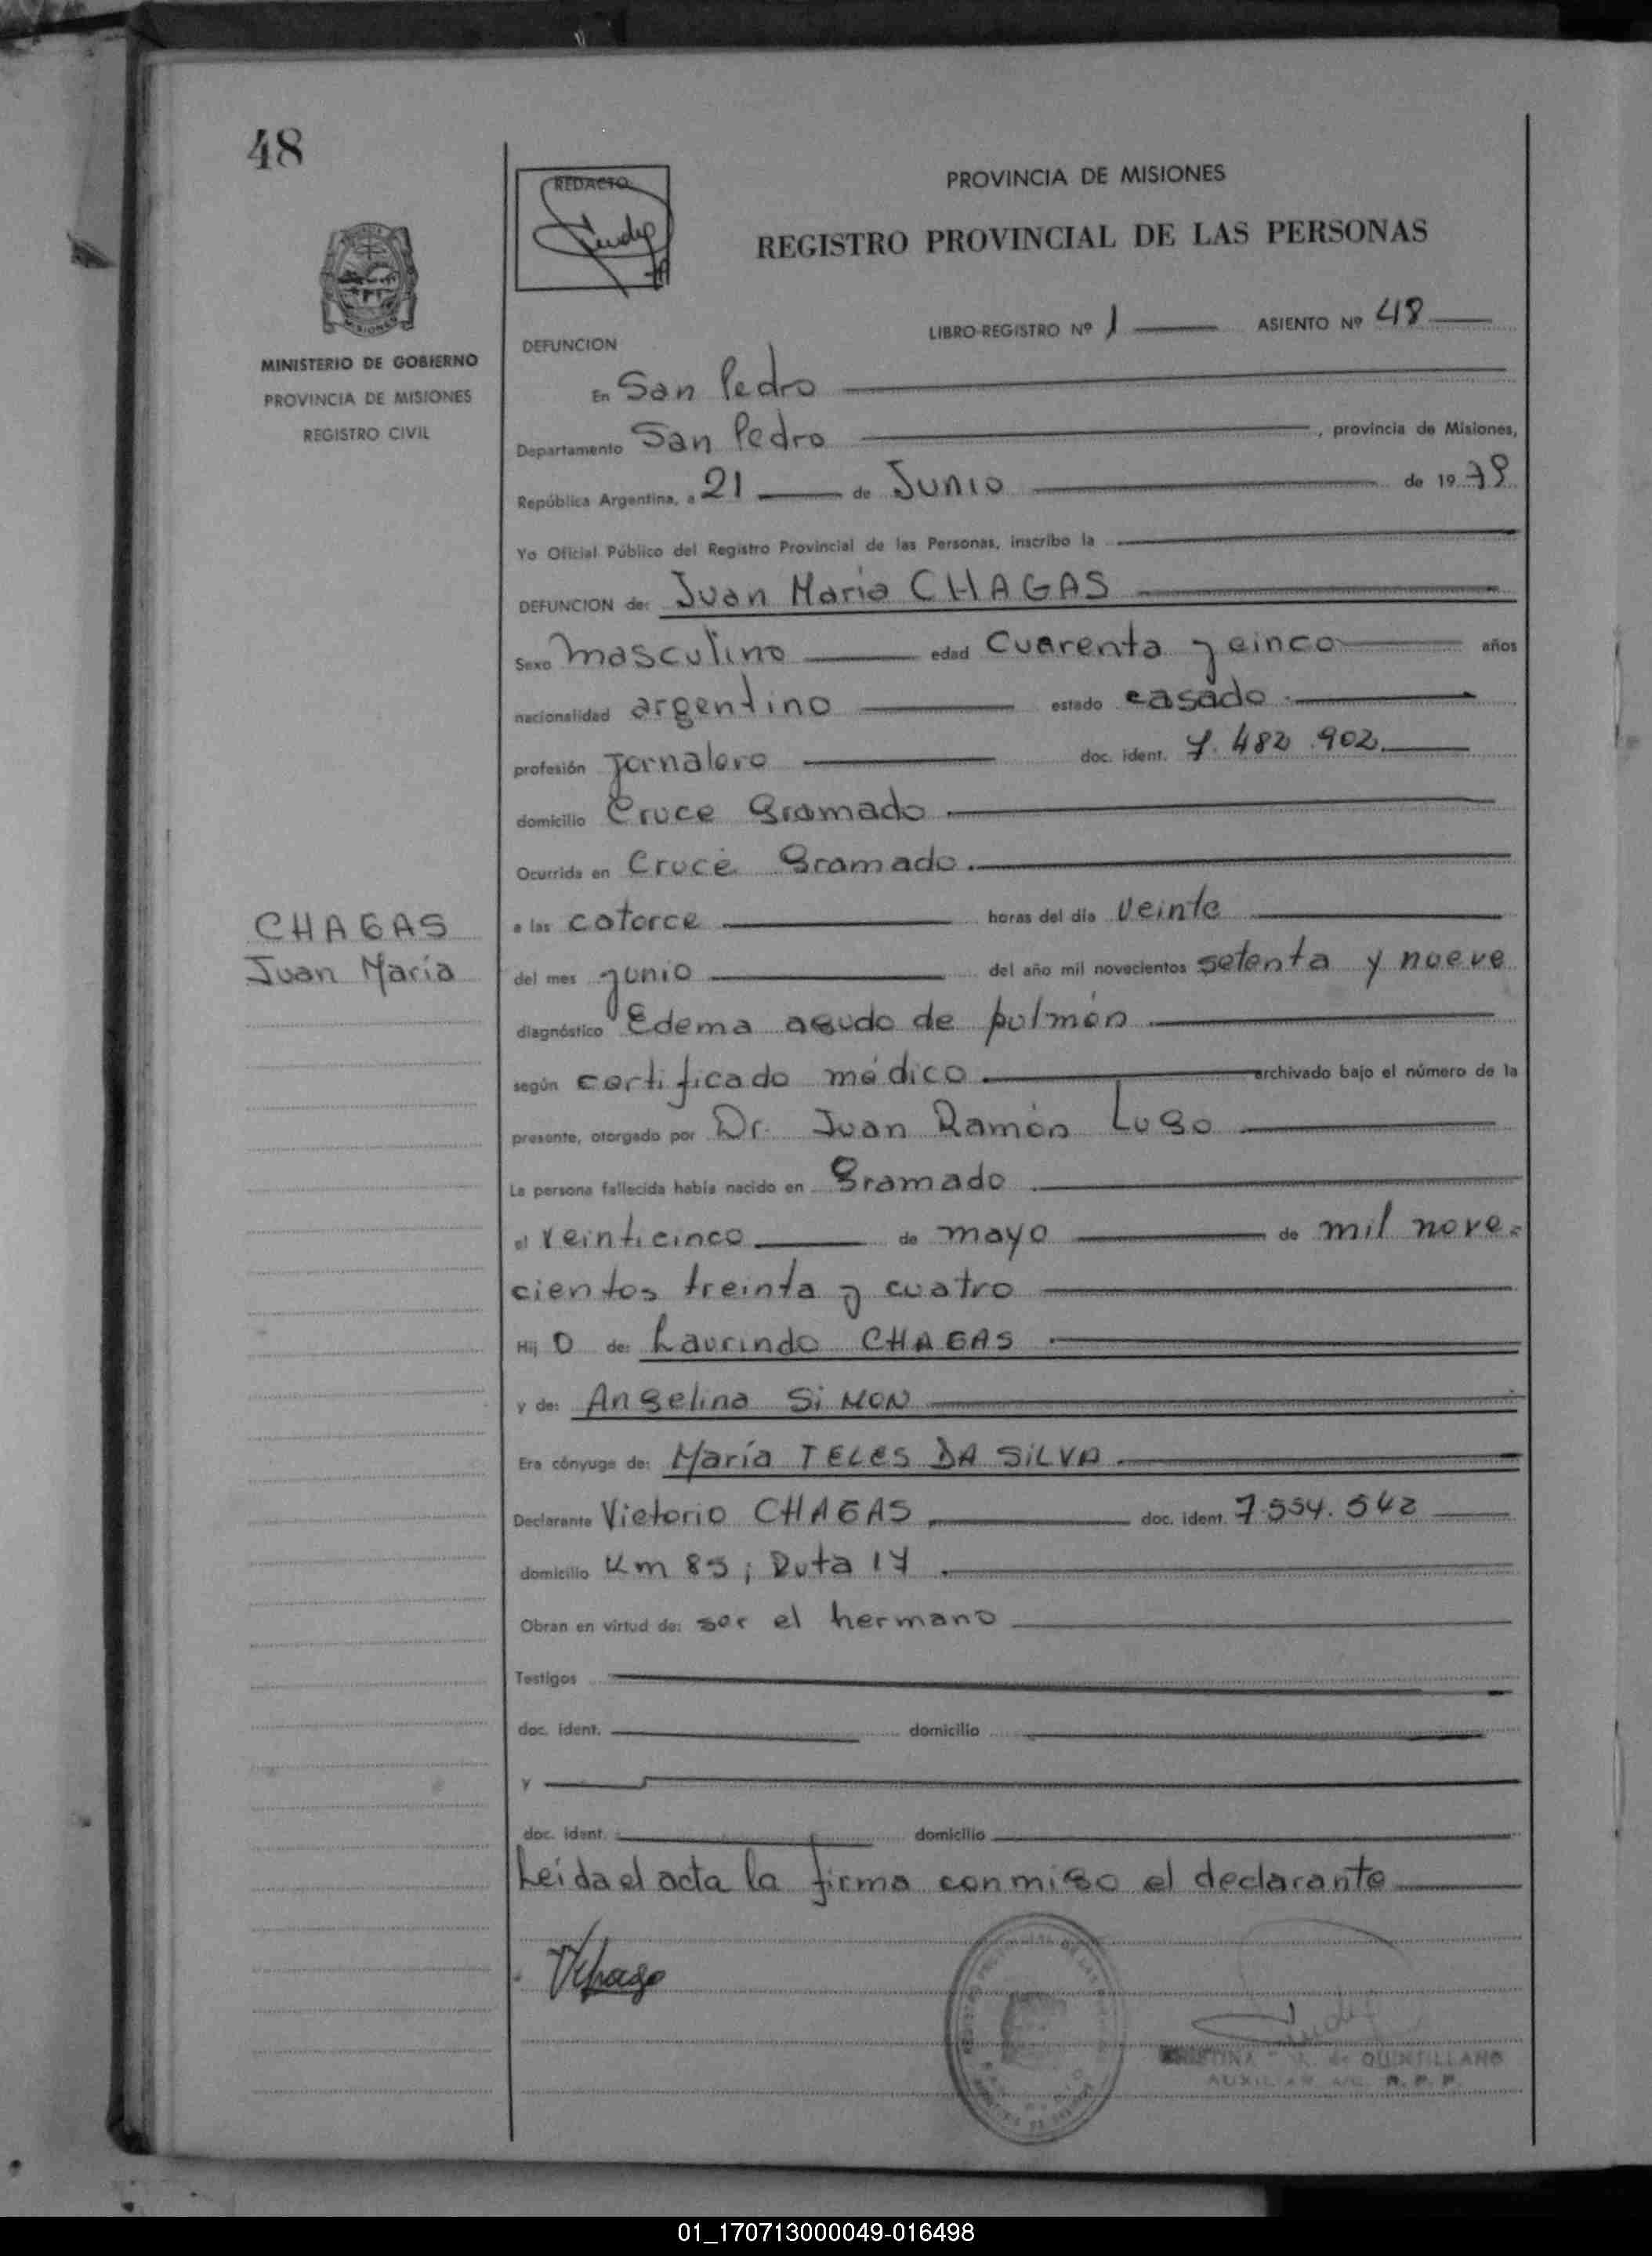 48
REDACTO
PROVINCIA DE MISIONES
REGISTRO PROVINCIAL DE LAS PERSONAS
MISIONES
MINISTERIO DE GOBIERNO
PROVINCIA DE MISIONES
REGISTRO CIVIL
LIBRO-REGISTRO Nº 1 ASIENTO Nº 48
DEFUNCION
En San Pedro
Departamento San Pedro , provincia de Misiones,
República Argentina, a 21 de Junio de 1979
Yo Oficial Público del Registro Provincial de las Personas, inscribo la
DEFUNCION de: Juan Maria CHAGAS
Sexo masculino edad Cuarenta y cinco años
nacionalidad argentino estado casado
profesión Jornalero doc. ident. 7.482.902
domicilio Cruce Gramado
Ocurrida en Cruce Gramado.
CHAGAS
Juan María
a las catorce horas del día veinte
del mes junio del año mil novecientos setenta y nueve
diagnóstico Edema agudo de pulmón
según certificado médico archivado bajo el número de la
presente, otorgado por Dr. Juan Ramón Lugo
La persona fallecida había nacido en Gramado
el veinticinco de mayo de mil nove=
cientos treinta y cuatro
Hijo de: Laurindo CHAGAS
y de: Angelina SiMON
Era cónyuge de: María TELES DA SiLVA
Declarante Victorio CHAGAS doc. ident. 7.554.542
domicilio Km 85; Ruta 14
Obran en virtud de: ser el hermano
Testigos
doc. ident. domicilio
y
doc. ident. domicilio
Leída el acta la firma conmigo el declarante
VChaga
de QUINTILLANO
AUXILIAR A/C. R. P. P.
01_170713000049-016498